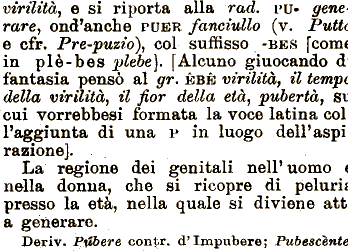 virilità, e si riporta alla rad. PU- gene-
rare, ond'anche PUER fanciullo (v. Putto
e cfr. Pre-puzio), col suffisso -BES [come
in plè-bes plebe]. [Alcuno giuocando di
fantasia pensò al gr. ÈBÊ virilità, il tempo
della virilità, il fior della età, pubertà, su
cui vorrebbesi formata la voce latina col-
l'aggiunta di una P in luogo dell'aspi
razione].
La regione dei genitali nell'uomo e
nella donna, che si ricopre di peluria
presso la età, nella quale si diviene att
a generare.
Deriv. Pùbere contr. d'Impubere; Pubescènte